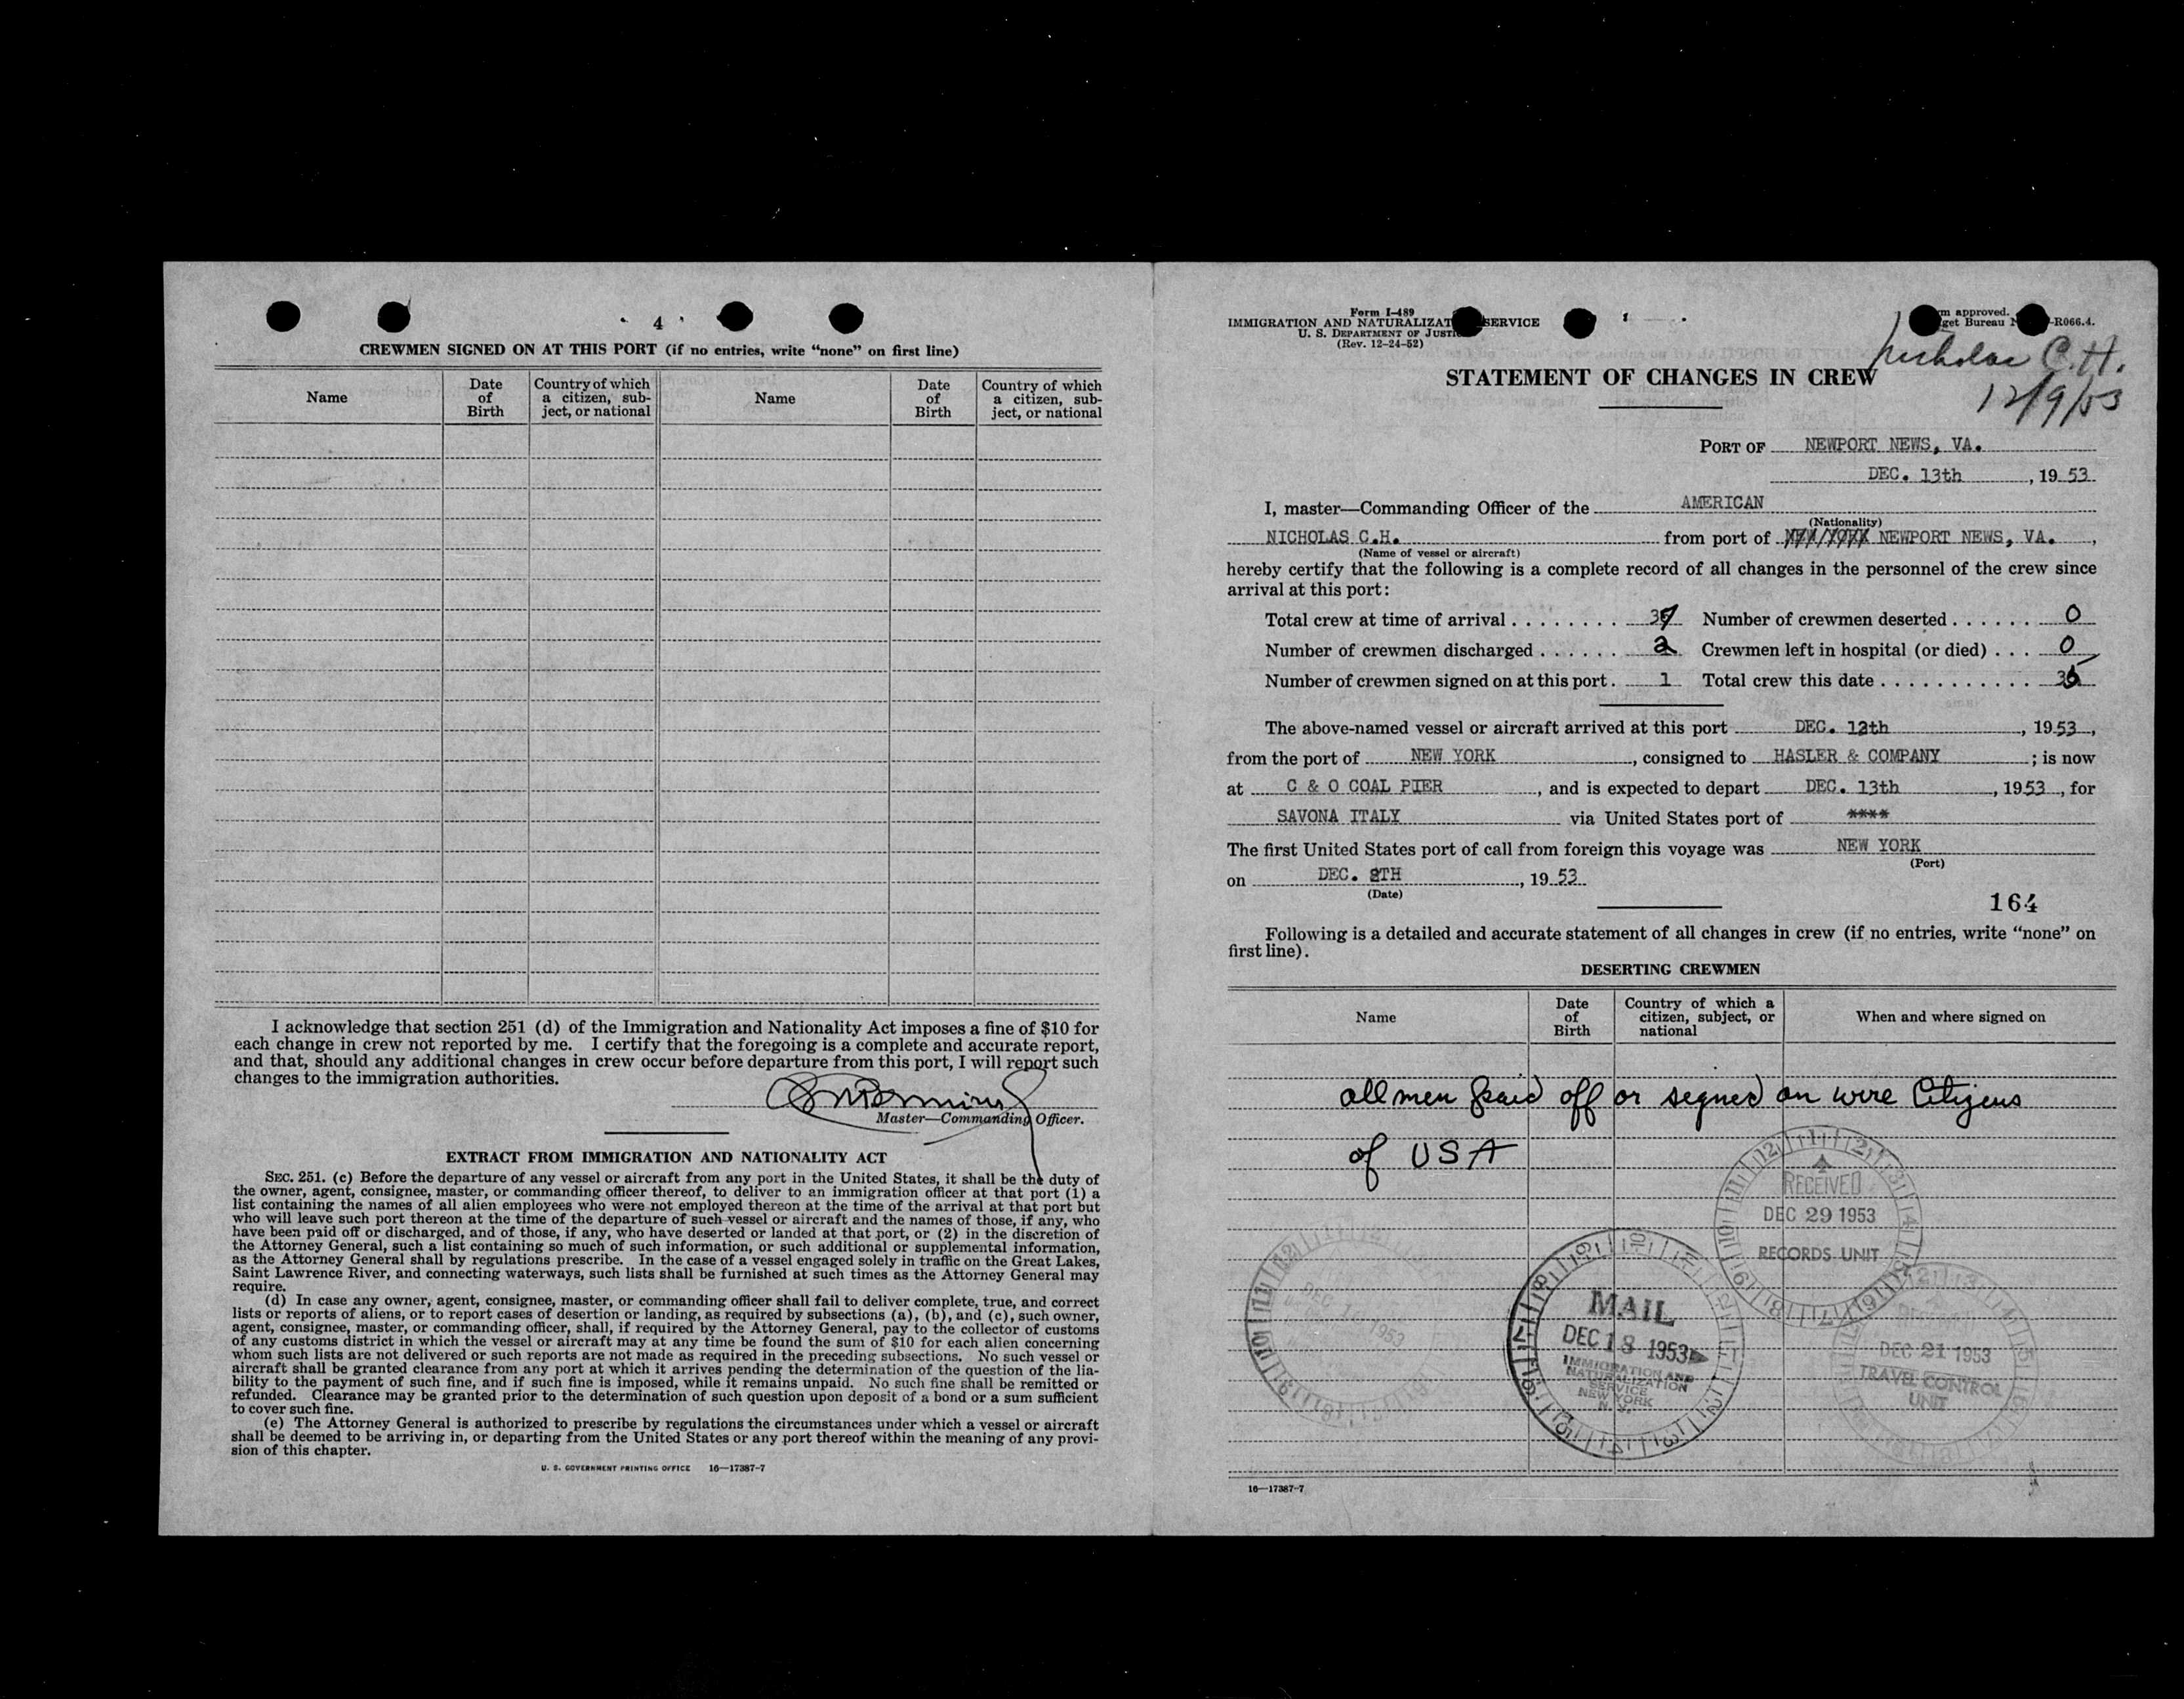 4
CREWMEN SIGNED ON AT THIS PORT (if no entries, write “none” on first line)
Name
Date of Birth
Country of which a citizen, sub-ject, or national
Name
Date of Birth
Country of which a citizen, sub-ject, or national
I acknowledge that section 251 (d) of the Immigration and Nationality Act imposes a fine of $10 for
each change in crew not reported by me. I certify that the foregoing is a complete and accurate report,
and that, should any additional changes in crew occur before departure from this port, I will report such
changes to the immigration authorities.
Master—Commanding Officer.
EXTRACT FROM IMMIGRATION AND NATIONALITY ACT
SEC. 251. (c) Before the departure of any vessel or aircraft from any port in the United States, it shall be the duty of
the owner, agent, consignee, master, or commanding officer thereof, to deliver to an immigration officer at that port (1) a
list containing the names of all alien employees who were not employed thereon at the time of the arrival at that port but
who will leave such port thereon at the time of the departure of such vessel or aircraft and the names of those, if any, who
have been paid off or discharged, and of those, if any, who have deserted or landed at that port, or (2) in the discretion of
the Attorney General, such a list containing so much of such information, or such additional or supplemental information,
as the Attorney General shall by regulations prescribe. In the case of a vessel engaged solely in traffic on the Great Lakes,
Saint Lawrence River, and connecting waterways, such lists shall be furnished at such times as the Attorney General may
require.
(d) In case any owner, agent, consignee, master, or commanding officer shall fail to deliver complete, true, and correct
lists or reports of aliens, or to report cases of desertion or landing, as required by subsections (a), (b), and (c), such owner,
agent, consignee, master, or commanding officer, shall, if required by the Attorney General, pay to the collector of customs
of any customs district in which the vessel or aircraft may at any time be found the sum of $10 for each alien concerning
whom such lists are not delivered or such reports are not made as required in the preceding subsections. No such vessel or
aircraft shall be granted clearance from any port at which it arrives pending the determination of the question of the lia-
bility to the payment of such fine, and if such fine is imposed, while it remains unpaid. No such fine shall be remitted or
refunded. Clearance may be granted prior to the determination of such question upon deposit of a bond or a sum sufficient
to cover such fine.
(e) The Attorney General is authorized to prescribe by regulations the circumstances under which a vessel or aircraft
shall be deemed to be arriving in, or departing from the United States or any port thereof within the meaning of any provi-
sion of this chapter.
U. S. GOVERNMENT PRINTING OFFICE 16—17387-7
Form I-489
IMMIGRATION AND NATURALIZAT SERVICE
U. S. DEPARTMENT OF JUSTI
(Rev. 12-24-52)
m approved.
get Bureau N -R066.4.
Nicholas C.H.
12/9/53
STATEMENT OF CHANGES IN CREW
PORT OF NEWPORT NEWS, VA.
DEC. 13th, 1953
I, master—Commanding Officer of the AMERICAN
(Nationality)
NICHOLAS C.H. from port of NEW YORK NEWPORT NEWS, VA.,
(Name of vessel or aircraft)
hereby certify that the following is a complete record of all changes in the personnel of the crew since
arrival at this port:
Total crew at time of arrival . . . . . . . . 37 Number of crewmen deserted . . . . . . 0
Number of crewmen discharged . . . . . . 2 Crewmen left in hospital (or died) . . . 0
Number of crewmen signed on at this port . 1 Total crew this date . . . . . . . . . . .
The above-named vessel or aircraft arrived at this port DEC. 12th, 1953,
from the port of NEW YORK, consigned to HASLER & COMPANY; is now
at C & O COAL PIER, and is expected to depart DEC. 13th, 1953, for
SAVONA ITALY via United States port of ****
The first United States port of call from foreign this voyage was NEW YORK
(Port)
on DEC. 8TH, 1953
(Date)
164
Following is a detailed and accurate statement of all changes in crew (if no entries, write “none” on
first line).
DESERTING CREWMEN
Name
Date of Birth
Country of which a citizen, subject, or national
When and where signed on
all men paid off or signed on were Citizens
of USA
RECEIVED
DEC 29 1953
RECORDS UNIT
MAIL
DEC 18 1953
IMMIGRATION AND
NATURALIZATION
SERVICE
NEW YORK
N. Y.
DEC 21 1953
TRAVEL CONTROL
UNIT
16—17387-7